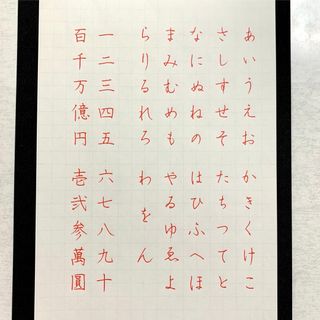 あいうえお かきくけこ
さしすせそ たちつてと
なにぬねの はひふへほ
まみむめも やゐゆゑよ
らりるれろ わをん
一二三四五 六七八九十
百千万億円 壱弐参萬圓